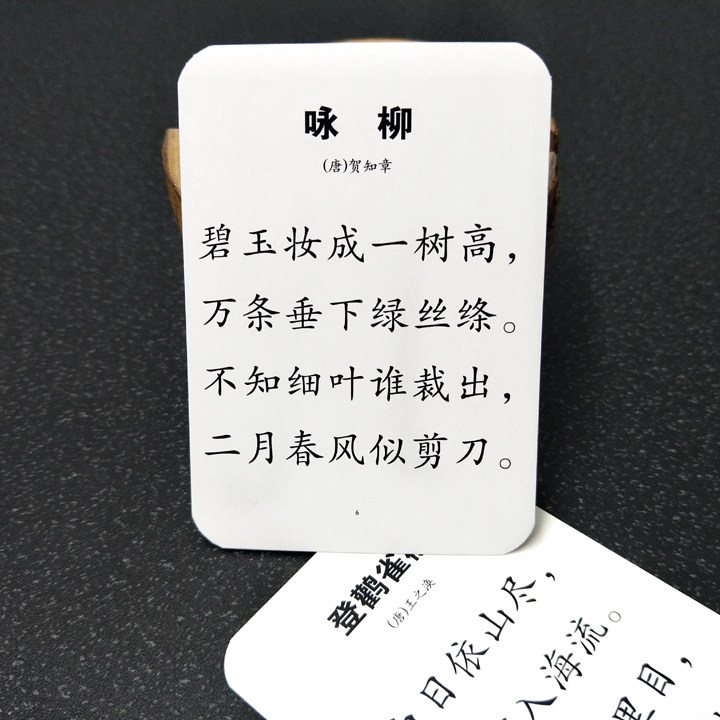 咏 柳
(唐)贺知章
碧玉妆成一树高，
万条垂下绿丝绦。
不知细叶谁裁出，
二月春风似剪刀。
6
登鹳雀
(唐)王之涣
日依山尽，
入海流。
里目，